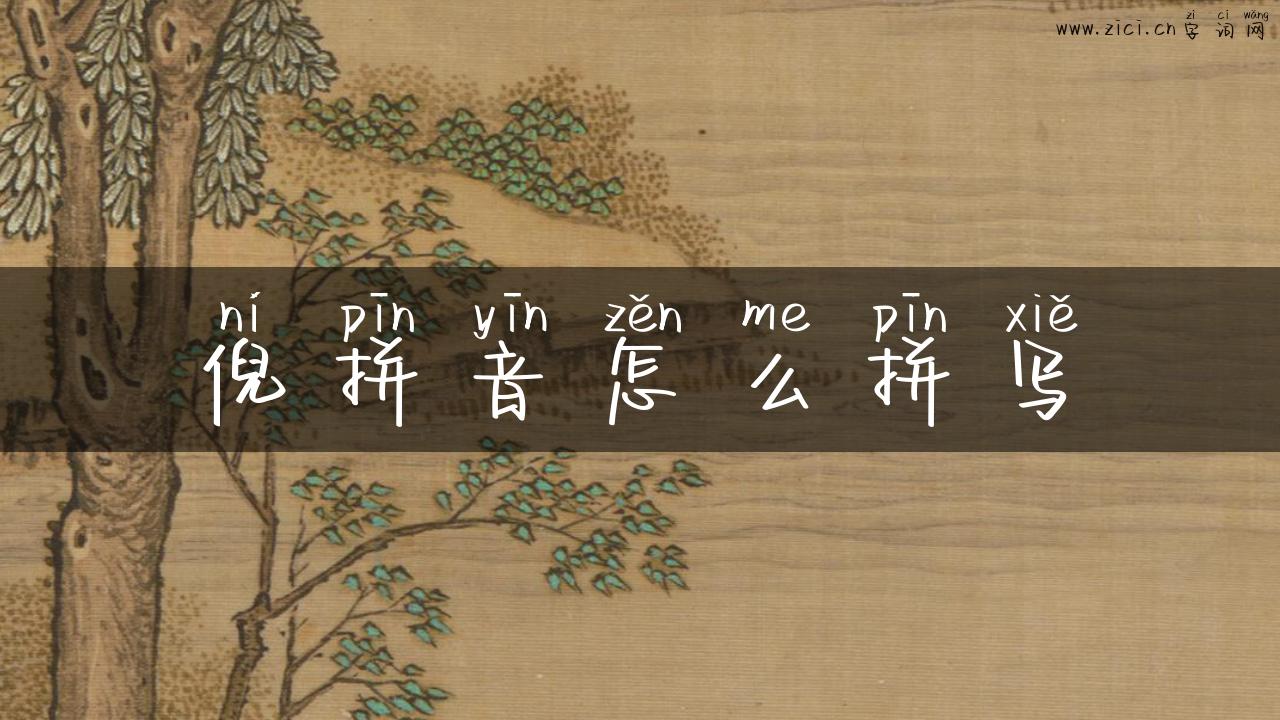 zì cí wǎng
www.zici.cn 字 词 网
ní pīn yīn zěn me pīn xiě
倪 拼 音 怎 么 拼 写